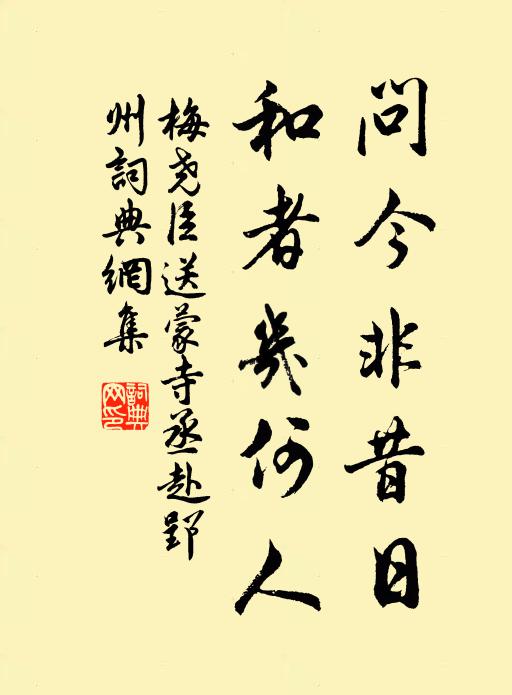 問今非昔日
和者幾何人
梅堯臣送蒙寺丞赴郢
州詞典網集
詞典
網印